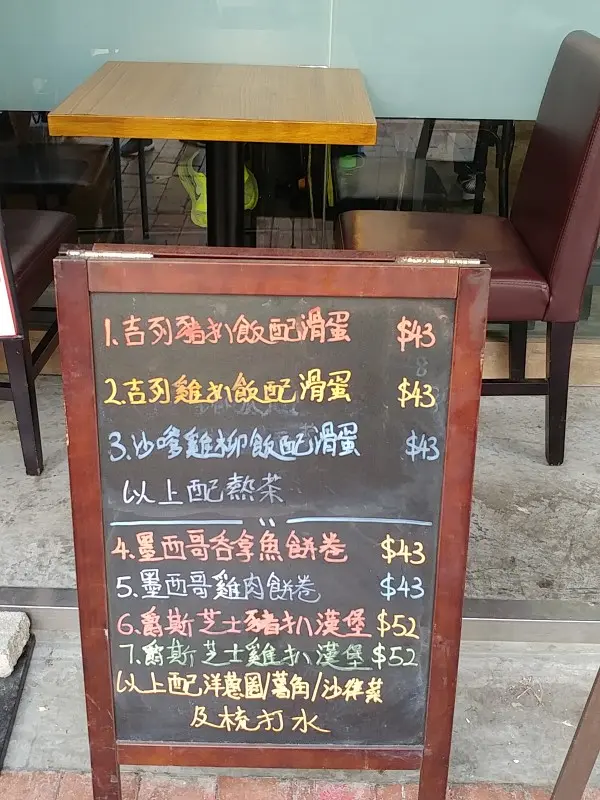 1.吉列豬扒飯配滑蛋 $43
2.吉列雞扒飯配滑蛋 $43
3.沙嗲雞柳飯配滑蛋 $43
以上配熱茶
4.墨西哥吞拿魚餅卷 $43
5.墨西哥雞肉餅卷 $43
6.爵斯芝士豬扒漢堡 $52
7.爵斯芝士雞扒漢堡 $52
以上配洋蔥圈/薯角/沙律菜
及梳打水